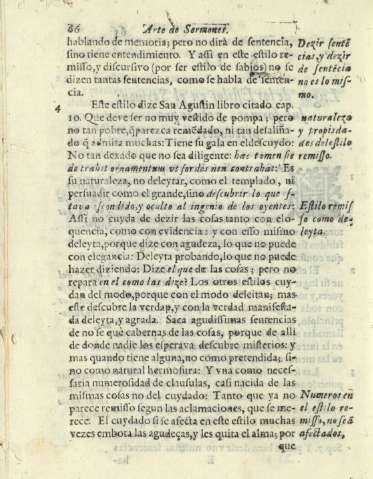 66 Arte de Sermones.
hablando de memoria; pero no dirà de sentencia,
sino tiene entendimiento. Y assi en este estilo re-
misso, y discursivo (por ser estilo de sabios) no se
dizen tantas sentencias, como se habla de senten-
cia.
Dezir sentẽ
cias, y dezir
de sentẽcia
no es lo mis-
mo.
4
Este estilo dize San Agustin libro citado cap.
10. Que deve ser no muy vestido de pompa; pero
no tan pobre, q̃ parezca remẽdado, ni tan desaliña-
do q̃ admita muchas: Tiene su gala en el descuydo:
No tan dexado que no sea diligente: hæc tamen sic
detrahit ornamentum vt sordes non contrahat: Es
su naturaleza, no deleytar, como el templado, ni
persuadir como el grande, sino descubrir lo que es-
tava escondido, y oculto al ingenio de los oyentes:
Assi no cuyda de dezir las cosas tanto con elo-
quencia, como con evidencia: y con esso mismo
deleyta, porque dize con agudeza, lo que no puede
con elegancia: Deleyta probando, lo que no puede
hazer diziendo: Dize el que de las cosas; pero no
repara en el como las dize: Los otros estilos cuy-
dan del modo, porque con el modo deleitan; mas
este descubre la verdad, y con la verdad manifesta-
da deleyta, y agrada. Saca agudissimas sentencias
de no se què cabernas de las cosas, porque de alli
de donde nadie los esperava descubre misterios: y
mas quando tiene alguna, no como pretendida, si-
no como natural hermosura: Y vna como neces-
saria numerosidad de clausulas, casi nacida de las
mismas cosas no del cuydado: Tanto que ya no
parece remisso segun las aclamaciones, que se me-
rece. El cuydado si se afecta en este estilo muchas
vezes embota las agudeças, y les quita el alma; por
naturaleza
y propieda-
des del estilo
remisso.
Estilo remis
so como de-
leyta.
Numeros en
el estilo re-
misso, no seã
afectados,
que